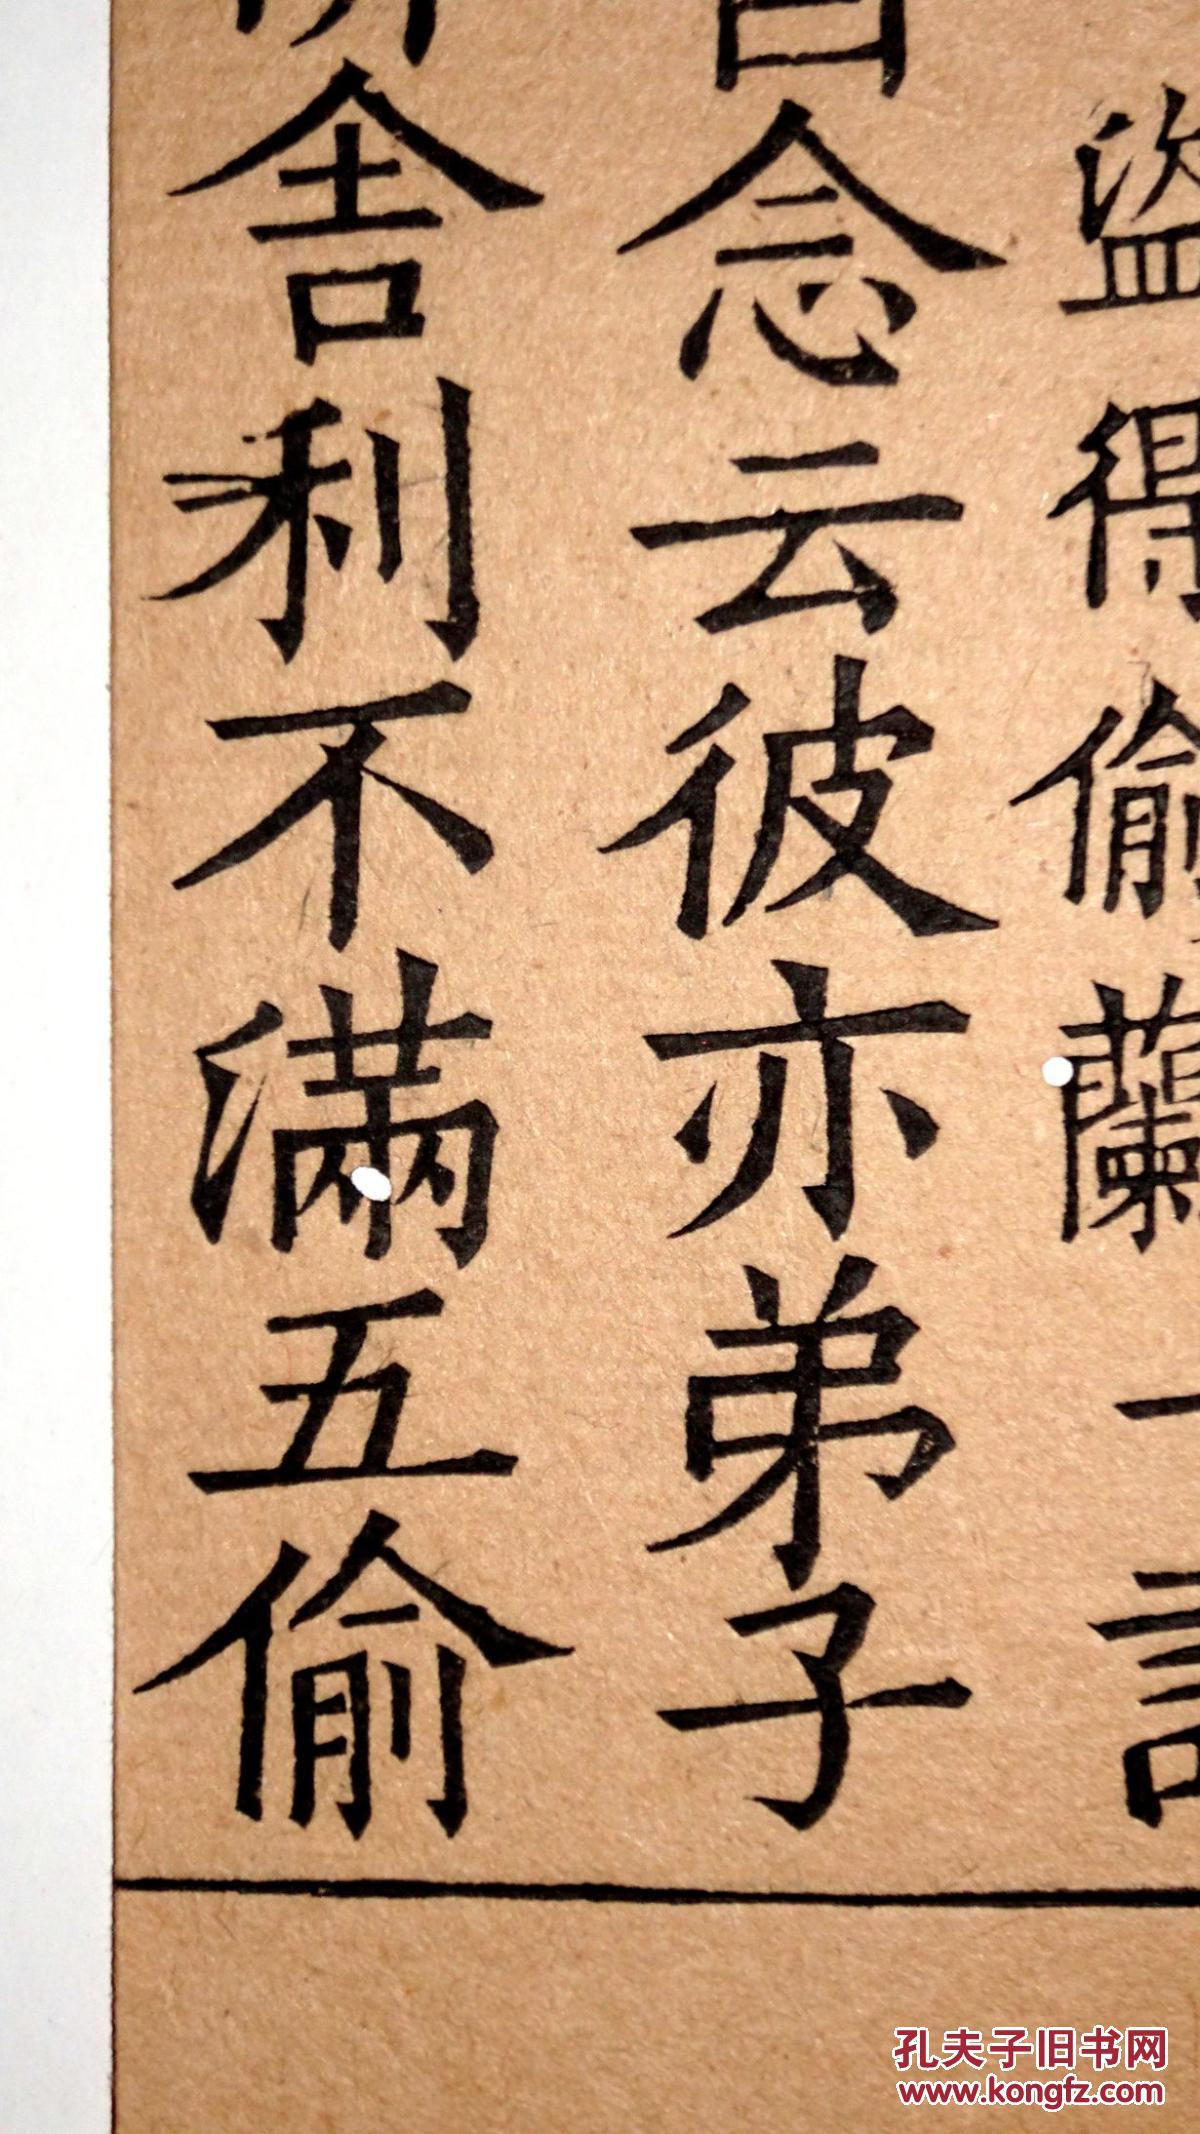 盜得偷蘭一
念云彼亦弟子
舍利不滿五偷
孔夫子旧书网
www.kongfz.com